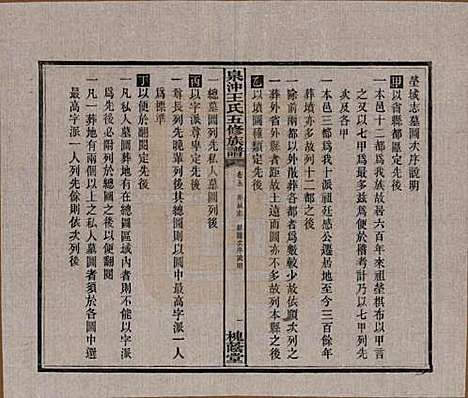 塋域志墓圖次序說明
甲以省縣都區定先後
一本邑十二都爲我族發居六百年來祖塋棋布以七甲
之又以七甲爲最多玆爲便於稽考計以七甲列先
次及各甲
一本邑三都爲我十派祖廷感公遷居地至今三百餘年
故列在十二都之後
一除前兩都以外散葬各都者爲數較少故依順次列之
一葬外省外縣者距故土遠而圖亦不多故列本縣之後
乙以墳圖種類定先後
泉沖王氏五修族譜
卷五
塋域志
墓圖次序說明
一
槐蔭堂
一總墓圖列先私人墓圖列後
丙以字派尊卑定先後
一尊長列先晚輩列後其總圖則以圖中最高字派一人
爲標準
丁以便於翻閱定先後
一凡私人墓圖葬地有在總圖區域內者其私人墓圖則
必附列於總圖之後以便翻閱
一凡一葬地有兩個以上之私人墓圖者須於各圖中選
最高字派一人列先餘則依次列後